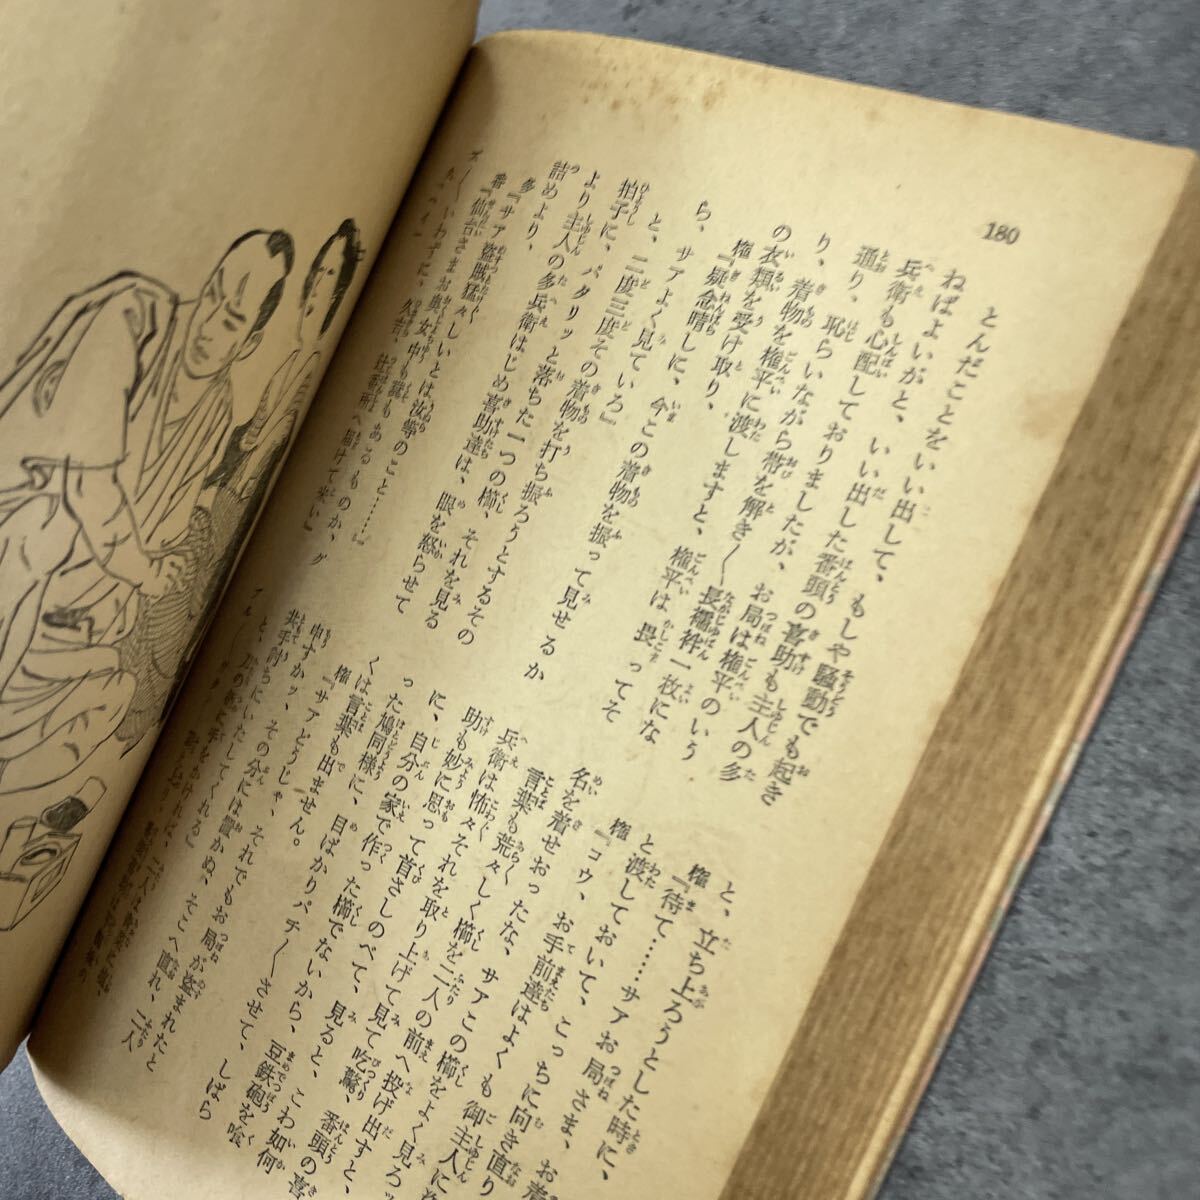 180
とんだことをいい出して、もしや騒動でも起き
ねばよいがと、いい出した番頭の喜助も主人の多
兵衛も心配しておりましたが、お局は権平のいう
通り、恥らいながら帯を解き〳〵長襦袢一枚にな
り、着物を権平に渡しますと、権平は畏ってそ
の衣類を受け取り、
権『疑念晴しに、今この着物を振って見せるか
ら、サアよく見ていろ』
と、二度三度その着物を打ち振ろうとするその
拍子に、バタリッと落ちた一つの櫛、それを見る
より主人の多兵衛はじめ喜助達は、眼を怒らせて
詰めより、
多『サア盗賊猛々しいとは汝等のこと……』
番『仙台さまお奥女中も嘘もあるものか、グ
と、立ち上ろうとした時に、
権『待て……サアお局さま、お
と渡しておいて、こっちに向き直り
権『コウ、お手前達はよくも御主人に
名を着せおったな、サアこの櫛をよく見ろッ
言葉も荒々しく櫛を二人の前へ投げ出すと、
兵衛は怖々それを取り上げて見て吃驚、番頭の喜
助も妙に思って首さしのべて、見ると、こわ如何
に、自分の家で作った櫛でないから、豆鉄砲を喰
った鳩同様に、目ばかりパチ〳〵させて、しばら
くは言葉も出ません。
権『サアどうじゃ、それでもお局が盗まれたと
申すかッ、その分には置かぬ、そこへ直れ、二人
共手討ちにいたしてくれる』